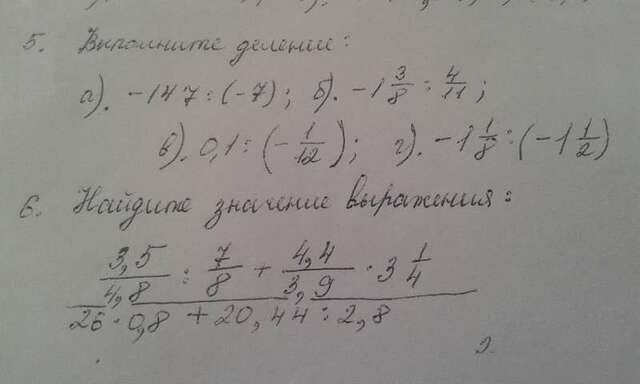 5. Выполните деление:
а). -147 : (-7); б). -1 3/8 : 4/11;
в). 0,1 : (-1/12); г). -1 1/8 : (-1 1/2)
6. Найдите значение выражения:
3,5/4,8 : 7/8 + 4,4/3,9 · 3 1/4
26 · 0,8 + 20,44 : 2,8